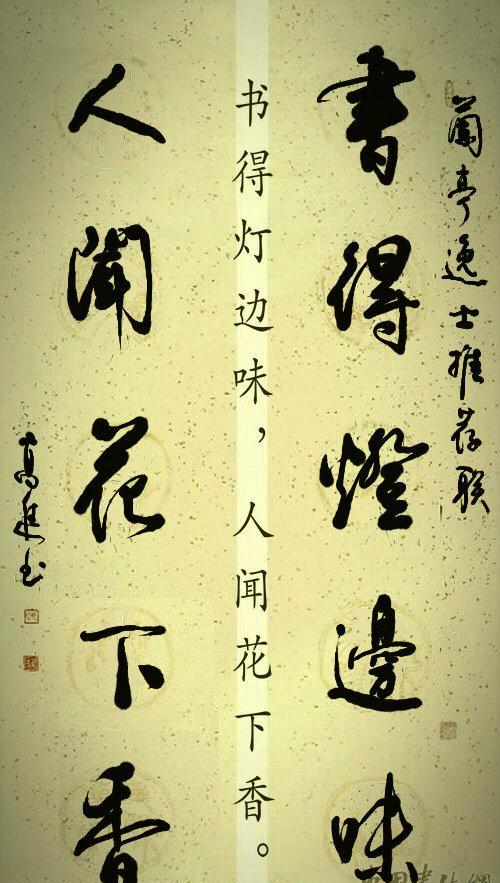 蘭亭逸士推荐联
書得燈邊味
书得灯边味，人闻花下香。
人聞花下香